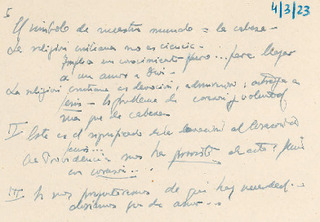 5
4/3/23
El símbolo de nuestro mundo = la cabeza -
La religión cristiana no es ciencia -
Implica un conocimiento pero... para llegar
a un amor a Dios -
La religión cristiana es devoción, admiración, entrega a
Jesús - Es problema de corazón y voluntad
mas que de cabeza
II Este es el significado de la devoción al Corazón de
Jesús...
La Providencia nos ha provisto de esto: Jesús
con corazón...
III Si nos preguntáramos de qué hay necesidad...
diríamos que de amor...